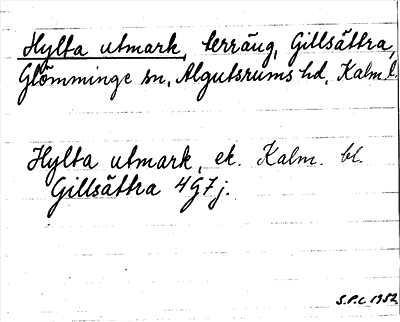 Hylta utmark, terräng, Gillsättra,
Glömminge sn, Algutsrums hd, Kalm l.
Hylta utmark, ek. Kalm. bl.
Gillsättra 4G7j.
S.P.L 1952